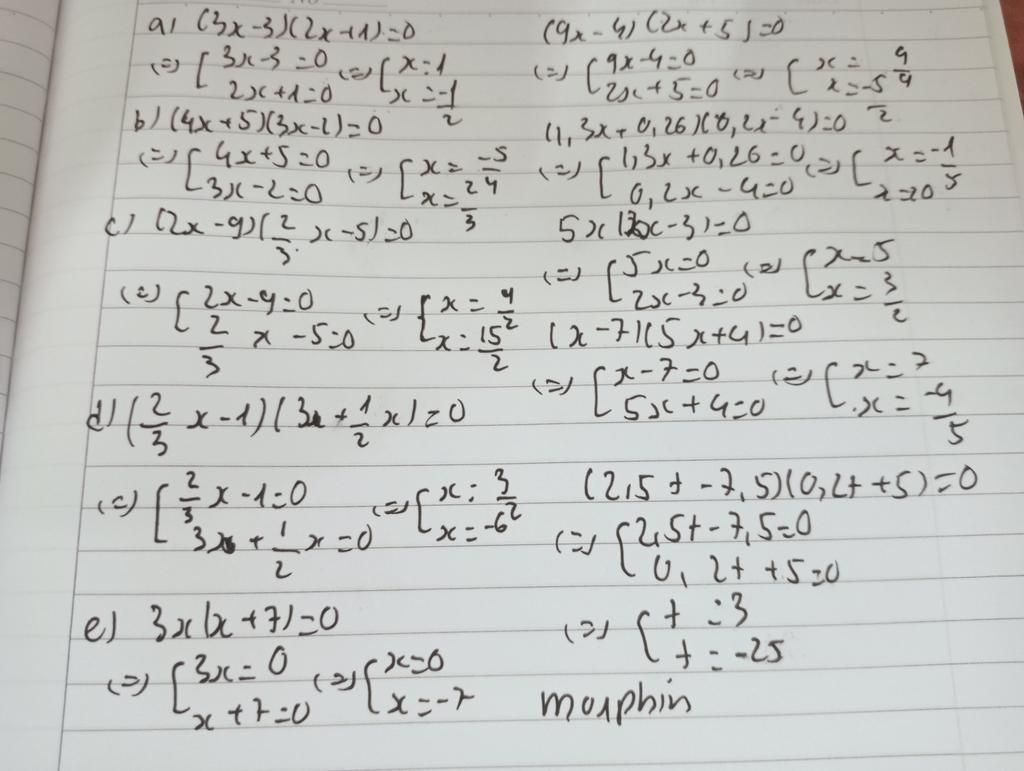 a) (3x-3)(2x+1)=0
(=) [ 3x-3=0 (=) [ x=1
2x+1=0 x=-1/2
b) (4x+5)(3x-2)=0
(=) [ 4x+5=0 (=) [ x=-5/4
3x-2=0 x=2/3
c) (2x-9)(2/3 x-5)=0
(=) { 2x-9=0 (=) { x=9/2
2/3 x-5=0 x=15/2
d) (2/3 x-1)(3+1/2 x)=0
(=) [ 2/3 x-1=0 (=) { x=3/2
3+1/2 x=0 x=-6
e) 3x(x+7)=0
(=) { 3x=0 (=) { x=0
x+7=0 x=-7
(9x-4)(2x+5)=0
(=) { 9x-4=0 (=) { x=4/9
2x+5=0 x=-5/2
(1,3x+0,26)(0,2x-4)=0
(=) { 1,3x+0,26=0 (=) { x=-1/5
0,2x-4=0
5x(2x-3)=0
(=) { 5x=0 (=) { x=5
2x-3=0 x=3/2
(x-7)(5x+4)=0
(=) { x-7=0 (=) { x=7
5x+4=0 x=-4/5
(2,5t-7,5)(0,2t+5)=0
(=) { 2,5t-7,5=0
0,2t+5=0
(=) { t=3
t=-25
morphin